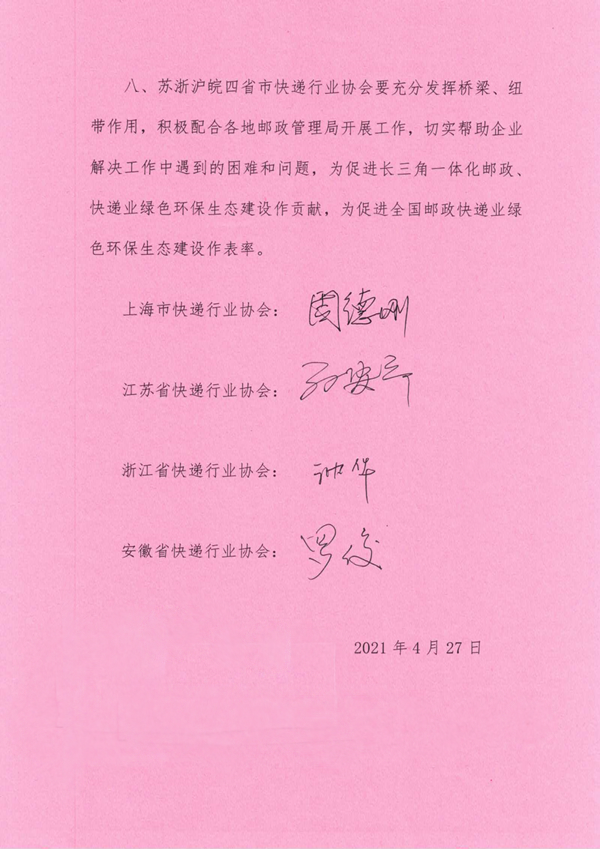 八、苏浙沪皖四省市快递行业协会要充分发挥桥梁、纽
带作用，积极配合各地邮政管理局开展工作，切实帮助企业
解决工作中遇到的困难和问题，为促进长三角一体化邮政、
快递业绿色环保生态建设作贡献，为促进全国邮政快递业绿
色环保生态建设作表率。
上海市快递行业协会：周德刚
江苏省快递行业协会：
浙江省快递行业协会：
安徽省快递行业协会：罗俊
2021 年 4 月 27 日